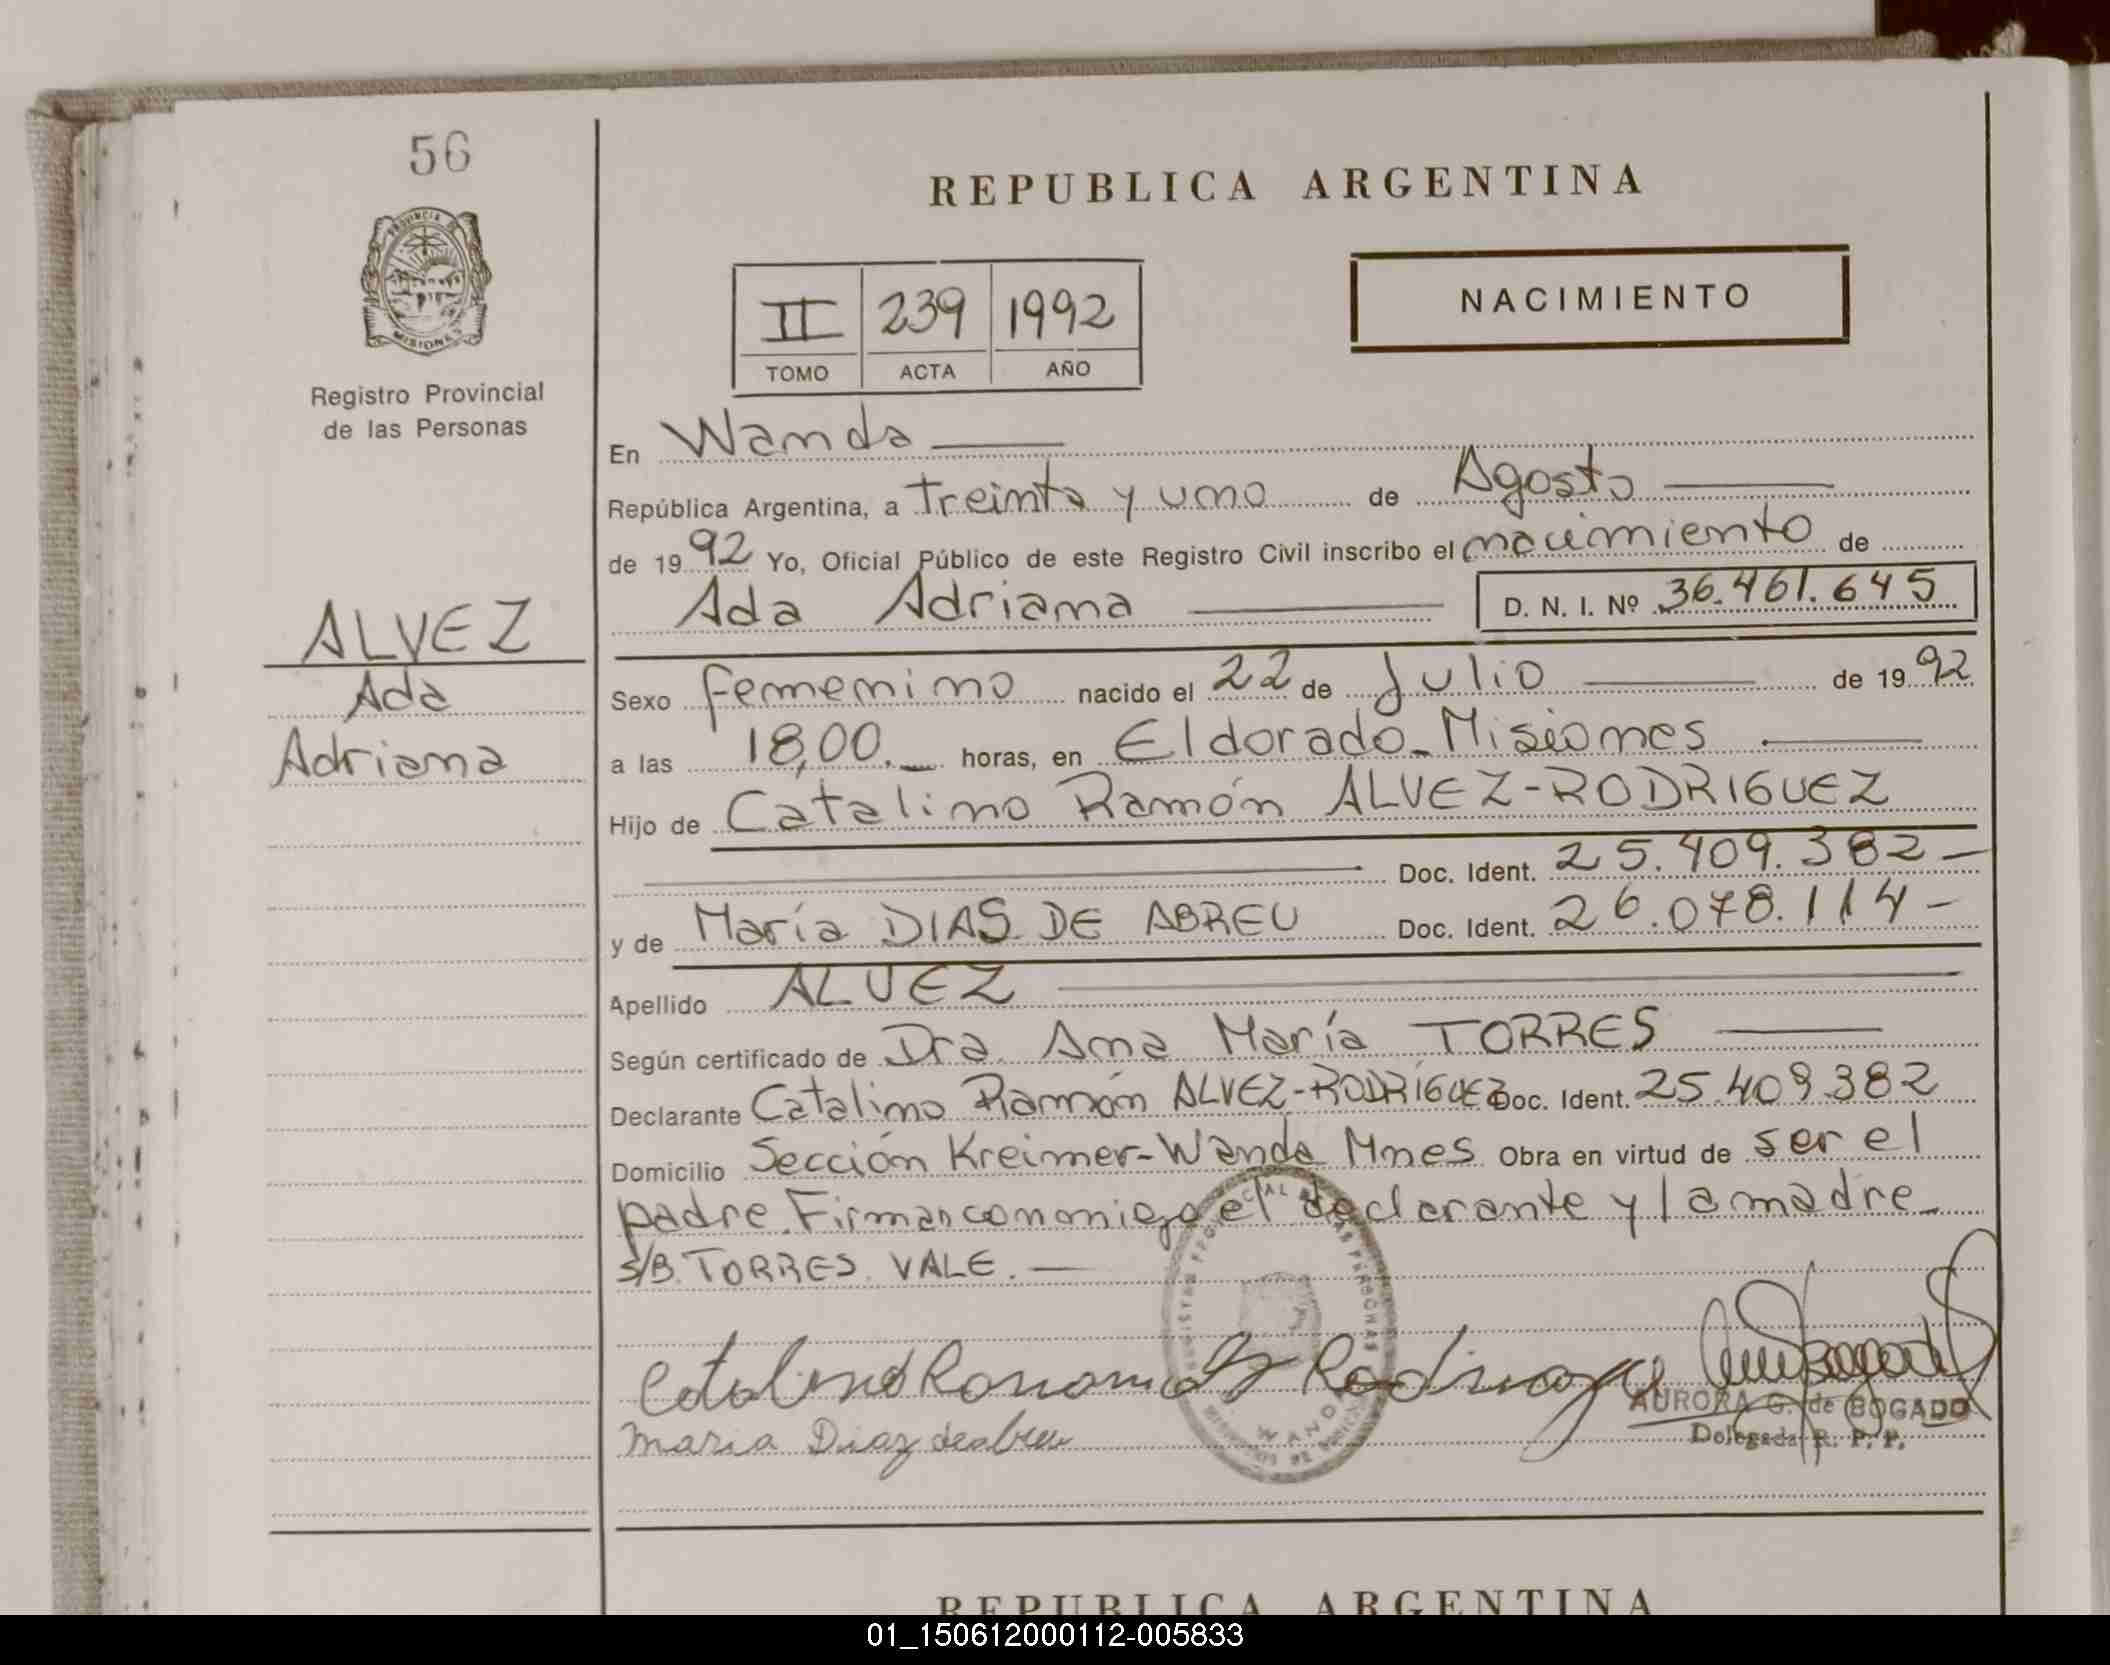 56
REPUBLICA ARGENTINA
PROVINCIA DE
MISIONES
II 239 1992
TOMO ACTA AÑO
NACIMIENTO
Registro Provincial
de las Personas
En Wanda
República Argentina, a treinta y uno de Agosto
de 1992 Yo, Oficial Público de este Registro Civil inscribo el nacimiento de
Ada Adriana D. N. I. Nº 36.461.645
ALVEZ
Ada
Adriana
Sexo femenino nacido el 22 de Julio de 1992
a las 18,00.- horas, en Eldorado-Misiones
Hijo de Catalino Ramón ALVEZ-RODRIGUEZ
Doc. Ident. 25.409.382-
y de María DIAS DE ABREU Doc. Ident. 26.078.114-
Apellido ALVEZ
Según certificado de Dra Ana María TORRES
Declarante Catalino Ramón ALVEZ-RODRÍGUEZ Doc. Ident. 25.409.382
Domicilio Sección Kreimer-Wanda Mnes Obra en virtud de ser el
padre. Firman conmigo el declarante y la madre-
S/B. TORRES. VALE.
Maria Diaz deabreu
AURORA G. de BOGADO
Delegada R. P. P.
WANDA
REPUBLICA ARGENTINA
01_150612000112-005833